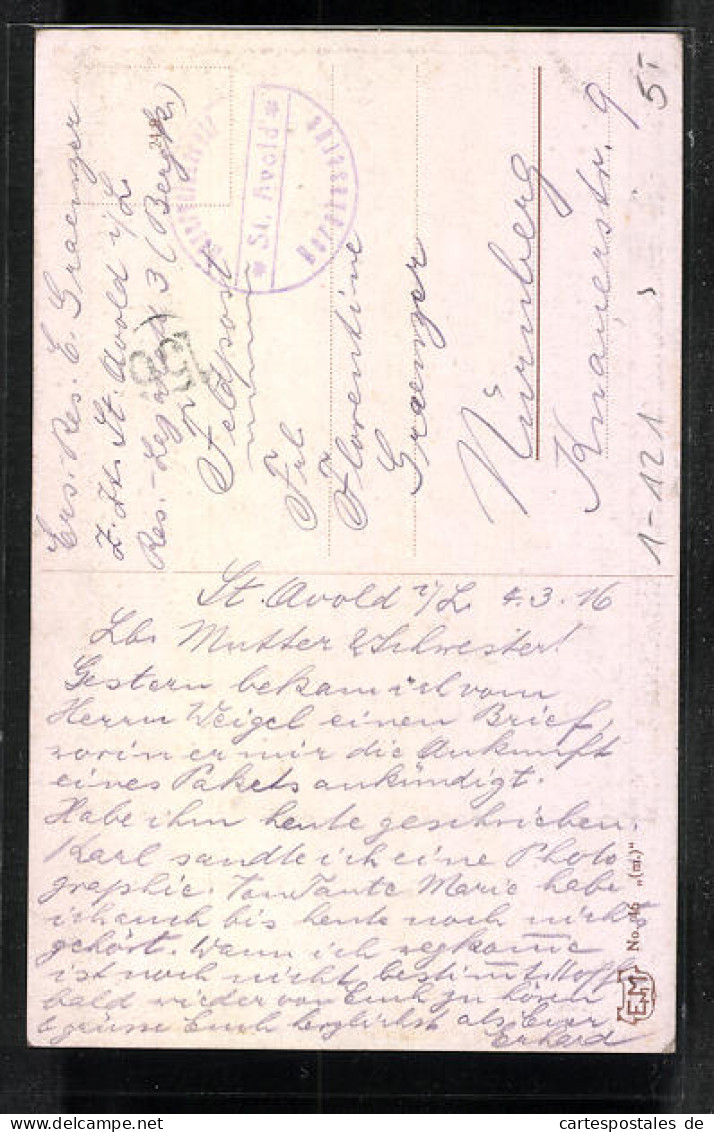 Ers. Res. E. Graenger
z. Zt. St. Avold i/L
Res.-Lazarett 3 (Bergk.)
* St. Avold *
Feldpost
Frl.
Florentine
Graenger
Nürnberg
Knauerstr. 9
5,-
1-121
St. Avold i/L. 4.3.16
Lb. Mutter & Schwester!
Gestern bekam ich vom
Herrn Weigel einen Brief,
worin er mir die Ankunft
eines Pakets ankündigt.
Habe ihm heute geschrieben.
Karl sandte ich eine Photo
graphie. Von Tante Marie habe
ich auch bis heute noch nichts
gehört. Wann ich wegkom̄e
ist noch nicht bestim̄t. Hoffe
bald wieder von Euch zu hören
& grüsse Euch herzlichst als Euer
Erhard
No. 46 „(m.)"
EM
cartespostales de delcampe.net